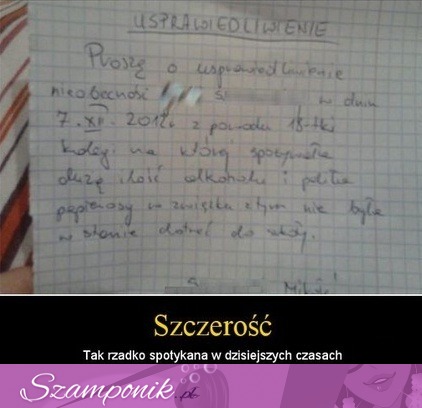 USPRAWIEDLIWIENIE
Proszę o usprawiedliwienie
nieobecności w dniu
7.XII.2012r z powodu 18-tki
kolegi na której spożywała
dużą ilość alkoholu i paliła
papierosy w związku z tym nie była
w stanie dotrzeć do szkoły.
Szczerość
Tak rzadko spotykana w dzisiejszych czasach
Szamponik.pl